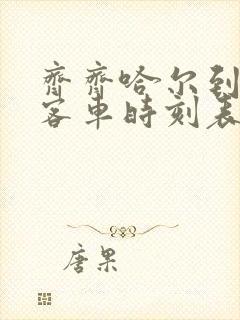 齊齊哈尔到
客車時刻表
唐果